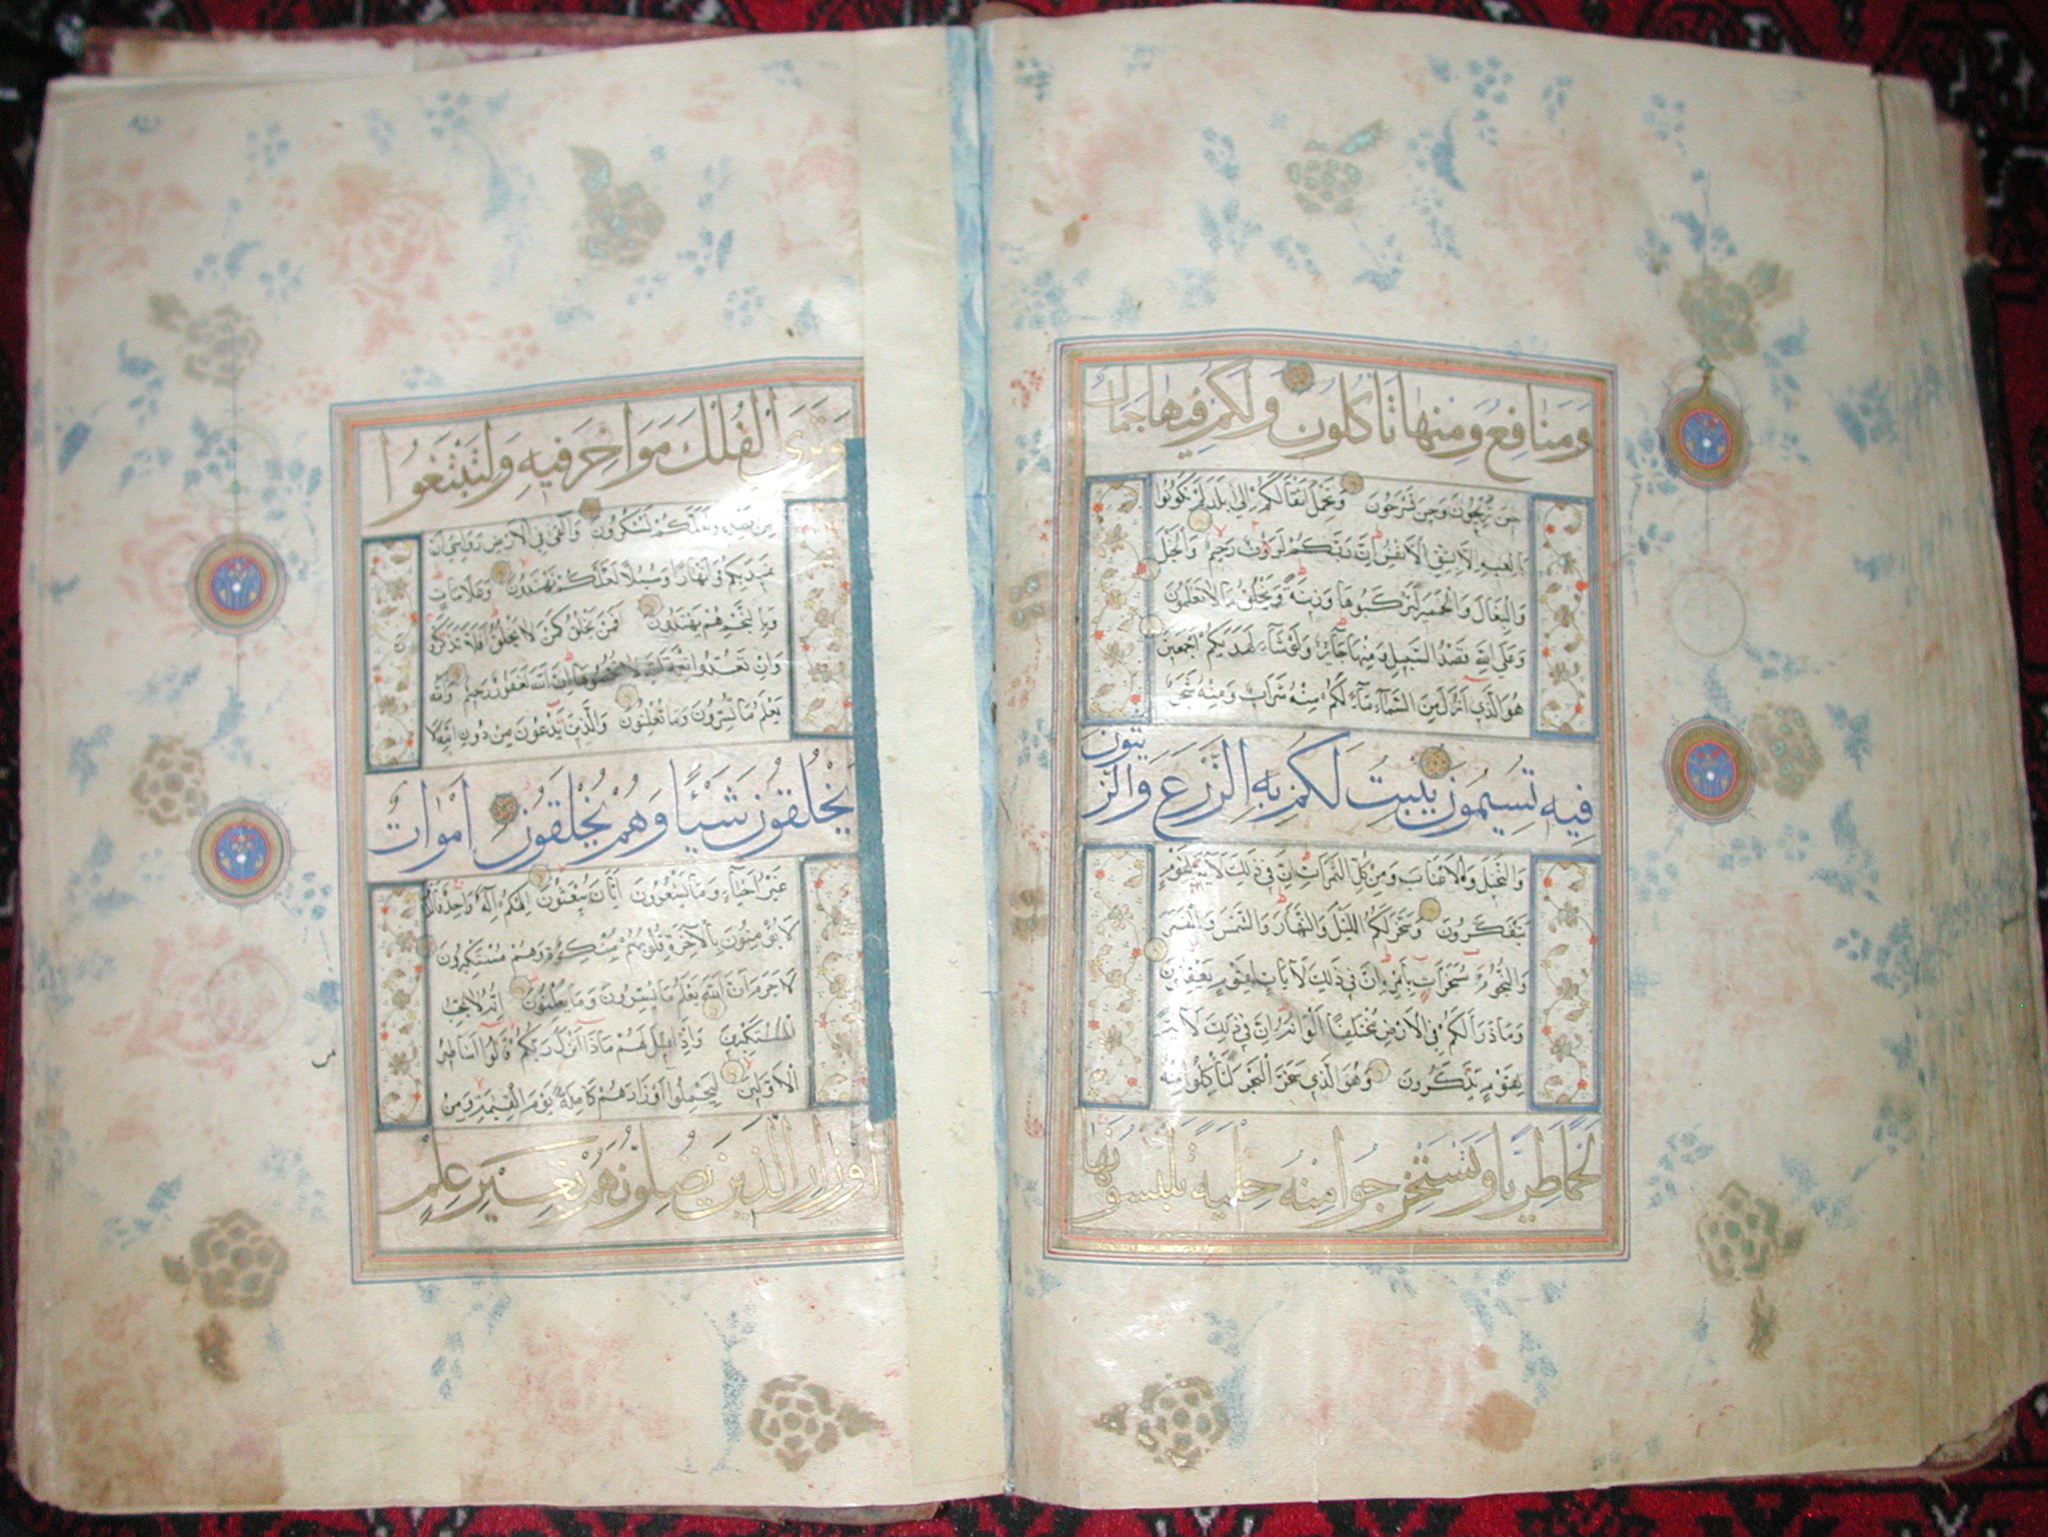 وَمَنَافِعُ وَمِنهَا تَأكُلُون وَلَكُم فِيهَا جَمَالٌ
حِينَ تُرِيحُونَ وَحِينَ تَسْرَحُونَ وَتَحْمِلُ اَثْقَالَكُمْ اِلَى بَلَدٍ لَمْ تَكُونُوا
بَالِغِيهِ اِلَّا بِشِقِّ الْاَنْفُسِ اِنَّ رَبَّكُمْ لَرَؤُفٌ رَحِيمٌ وَالْخَيْلَ
وَالْبِغَالَ وَالْحَمِيرَ لِتَرْكَبُوهَا وَزِينَةً وَيَخْلُقُ مَا لَا تَعْلَمُونَ
وَعَلَى اللَّهِ قَصْدُ السَّبِيلِ وَمِنْهَا جَآئِرٌ وَلَوْ شَآءَ لَهَدَيكُمْ اَجْمَعِينَ
هُوَ الَّذِي اَنْزَلَ مِنَ السَّمَآءِ مَآءً لَكُمْ مِنْهُ شَرَابٌ وَمِنْهُ شَجَرٌ
فِيهِ تُسِيمُونَ يُنْبِتُ لَكُمْ بِهِ الزَّرْعَ وَالزَّيتُونَ
وَالنَّخِيلَ وَالْاَعْنَابَ وَمِنْ كُلِّ الثَّمَرَاتِ اِنَّ فِي ذَلِكَ لَآيَةً لِقَوْمٍ
يَتَفَكَّرُونَ وَسَخَّرَ لَكُمُ اللَّيْلَ وَالنَّهَارَ وَالشَّمْسَ وَالْقَمَرَ
وَالنُّجُومُ مُسَخَّرَاتٌ بِاَمْرِهِ اِنَّ فِي ذَلِكَ لَآيَاتٍ لِقَوْمٍ يَعْقِلُونَ
وَمَا ذَرَاَ لَكُمْ فِي الْاَرْضِ مُخْتَلِفًا اَلْوَانُهُ اِنَّ فِي ذَلِكَ لَآيَةً
لِقَوْمٍ يَذَّكَّرُونَ وَهُوَ الَّذِي سَخَّرَ الْبَحْرَ لِتَأْكُلُوا مِنْهُ
لَحْمًا طَرِيًّا وَتَسْتَخْرِجُوا مِنْهُ حِلْيَةً تَلْبَسُونَهَا
وَتَرَى الْفُلْكَ مَوَاخِرَ فِيهِ وَلِتَبْتَغُوا
مِنْ فَضْلِهِ وَلَعَلَّكُمْ تَشْكُرُونَ وَاَلْقَى فِي الْاَرْضِ رَوَاسِيَ اَنْ
تَمِيدَ بِكُمْ وَاَنْهَارًا وَسُبُلًا لَعَلَّكُمْ تَهْتَدُونَ وَعَلَامَاتٍ
وَبِالنَّجْمِ هُمْ يَهْتَدُونَ اَفَمَنْ يَخْلُقُ كَمَنْ لَا يَخْلُقُ اَفَلَا تَذَكَّرُونَ
وَاِنْ تَعُدُّوا نِعْمَةَ اللَّهِ لَا تُحْصُوهَا اِنَّ اللَّهَ لَغَفُورٌ رَحِيمٌ وَاللَّهُ
يَعْلَمُ مَا تُسِرُّونَ وَمَا تُعْلِنُونَ وَالَّذِينَ يَدْعُونَ مِنْ دُونِ اللَّهِ لَا
يَخْلُقُونَ شَيْئًا وَهُمْ يُخْلَقُونَ اَمْوَاتٌ
غَيْرُ اَحْيَآءٍ وَمَا يَشْعُرُونَ اَيَّانَ يُبْعَثُونَ اِلَهُكُمْ اِلَهٌ وَاحِدٌ فَالَّذِينَ
لَا يُؤْمِنُونَ بِالْآخِرَةِ قُلُوبُهُمْ مُنْكِرَةٌ وَهُمْ مُسْتَكْبِرُونَ
لَا جَرَمَ اَنَّ اللَّهَ يَعْلَمُ مَا يُسِرُّونَ وَمَا يُعْلِنُونَ اِنَّهُ لَا يُحِبُّ
الْمُسْتَكْبِرِينَ وَاِذَا قِيلَ لَهُمْ مَاذَا اَنْزَلَ رَبُّكُمْ قَالُوا اَسَاطِيرُ
الْاَوَّلِينَ لِيَحْمِلُوا اَوْزَارَهُمْ كَامِلَةً يَوْمَ الْقِيمَةِ وَمِنْ
اَوْزَارِ الَّذِينَ يُضِلُّونَهُمْ بِغَيْرِ عِلْمٍ